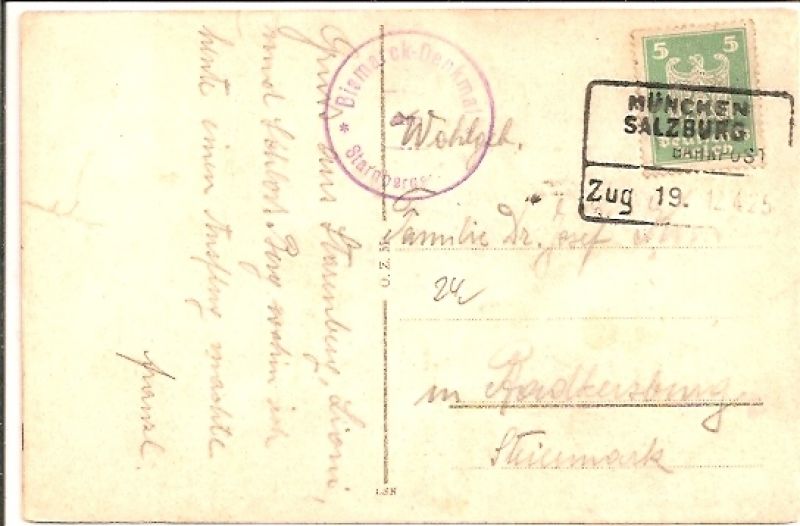 Gruß aus Starnberg, Leoni,
und Schloß Berg wohin ich
heute einen Ausflug machte
Franzl.
Bismarck-Denkmal
* Starnberger
O. Z. M.
LSN
5 5
Deutsch
MÜNCHEN
SALZBURG
BAHNPOST
Zug 19. 12 4 25
Wohlgeb.
Familie Dr. Josef
24
in Radkersburg
Steiermark